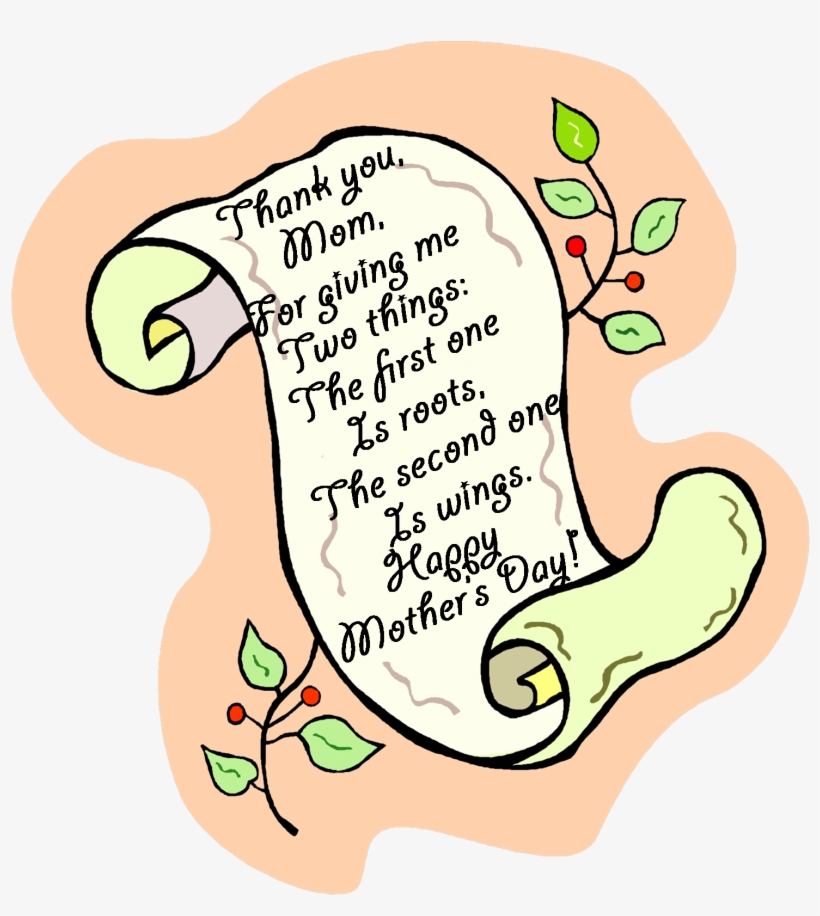 Thank you,
Mom,
For giving me
Two things:
The first one
Is roots,
The second one
Is wings.
Happy
Mother's Day!